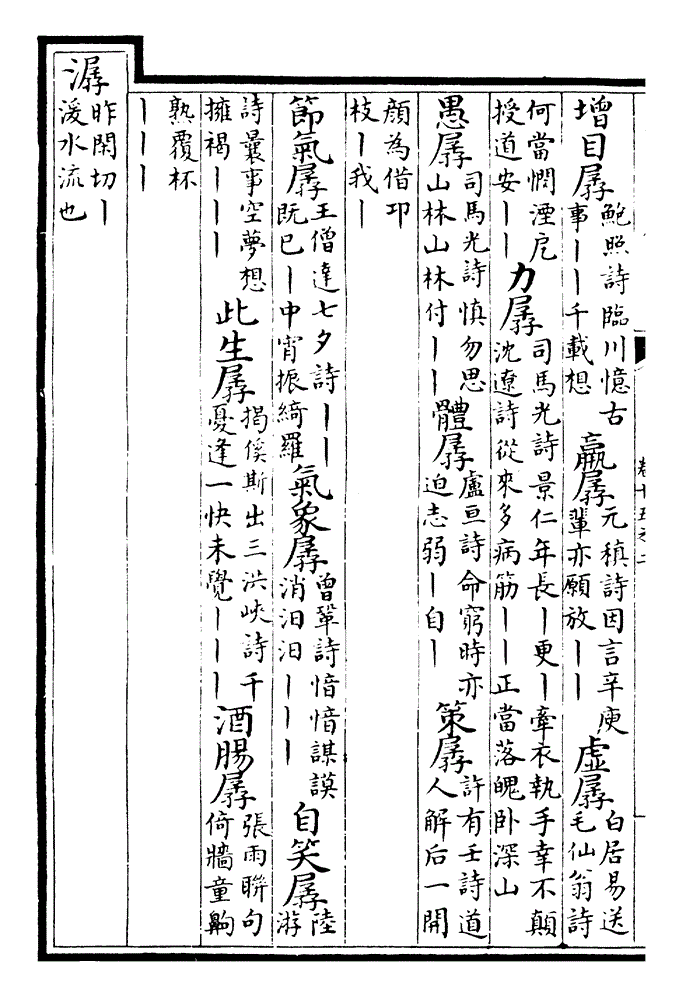 增目孱鮑照詩臨川憶古事丨丨千載想羸孱元稹詩因言辛庾輩亦願放丨丨虛孱白居易送毛仙翁詩
何當憫湮厄授道安丨丨力孱司馬光詩景仁年長丨更丨牽衣執手幸不顛沈遼詩從來多病筋丨丨正當落魄卧深山
愚孱司馬光詩慎勿思山林山林付丨丨體孱盧亘詩命窮時亦迫志弱丨自丨策孱許有壬詩道人解后一開
顔為借卬枝丨我丨
節氣孱王僧達七夕詩丨丨既已丨中宵振綺羅氣象孱曾鞏詩愔愔謀謨消汩汩丨丨丨自笑孱陸游
詩曩事空夢想擁褐丨丨丨此生孱揭傒斯出三洪峽詩千憂逢一快未覺丨丨丨酒腸孱張雨聯句倚牆童齁
熟覆杯丨丨丨
潺昨閑切丨湲水流也